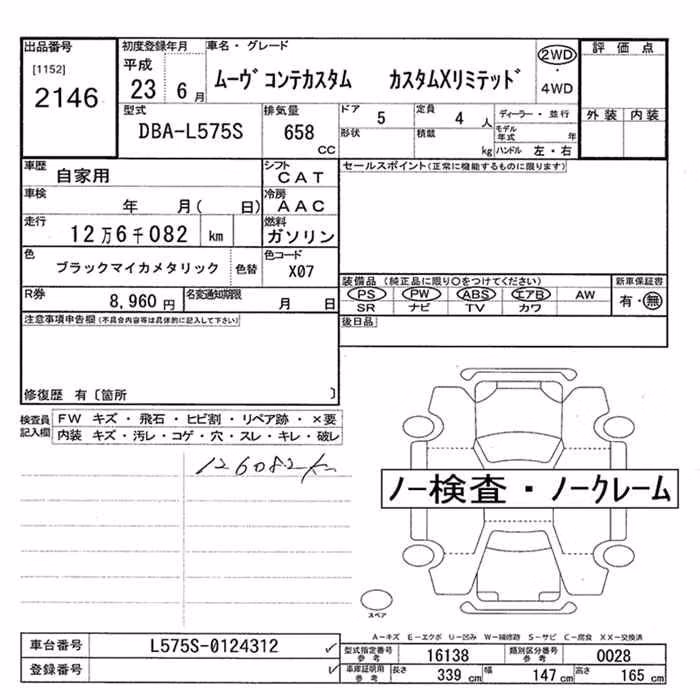 出品番号
[1152]
2146
初度登録年月
平成
23 6 月
車名・グレード
ムーヴ コンテカスタム カスタムXリミテッド
2WD
・
4WD
評価点
外装 内装
型式
DBA-L575S
排気量
658
CC
ドア
5
定員
4 人
ディーラー・並行
形状
積載
kg
モデル
年式 年
ハンドル 左・右
車歴
自家用
シフト
CAT
セールスポイント(正常に機能するものに限ります)
車検
年 月( 日)
冷房
AAC
走行
12万6千082 km
燃料
ガソリン
色
ブラックマイカメタリック
色替
色コード
X07
装備品 (純正品に限り○をつけてください)
新車保証書
PS PW ABS エアB AW
有・無
SR ナビ TV カワ
R券
8,960 円
名変通知期限
月 日
後日品
注意事項申告欄(不具合内容等は具体的に記入して下さい)
修復歴 有〔箇所 〕
検査員
記入欄
FW キズ・飛石・ヒビ割・リペア跡・×要
内装 キズ・汚レ・コゲ・穴・スレ・キレ・破レ
126082km
ノー検査・ノークレーム
スペア
A-キズ E-エクボ U-凹み W-補修跡 S-サビ C-腐食 XX-交換済
車台番号
L575S-0124312
型式指定番号
参考
16138
類別区分番号
参考
0028
登録番号
車庫証明用
参考
長さ
339 cm
幅
147 cm
高さ
165 cm